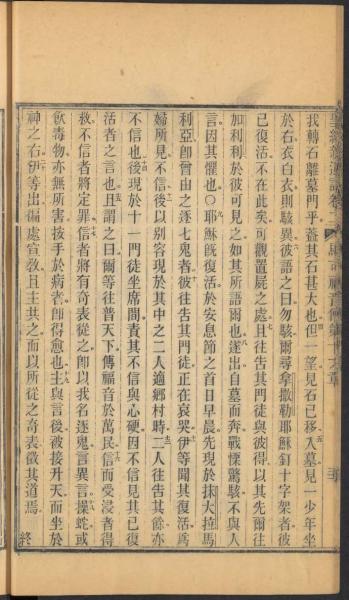 我轉石離墓門乎蓋其石甚大也但一望見石已移入墓見一少年坐
於右衣白衣則駭異彼語之曰勿駭爾尋拿撒勒耶穌釘十字架者彼
已復活不在此矣可觀置屍之處且往告其門徒與彼得以其先爾往
加利利於彼可見之如其所語爾也遂出自墓而奔戰慄驚駭不與人
言因其懼也○耶穌既復活於安息節之首日早晨先現於抹大拉馬
利亞卽曾由之逐七鬼者彼往告其門徒正在哀哭伊等聞其復活爲
婦所見不信後以別容現於其中之二人適鄉村時二人往告其餘亦
不信也後現於十一門徒坐席間責其不信與心硬因不信見其已復
活者之言也且謂之曰爾等往普天下傳福音於萬民信而受浸者得
救不信者將定罪信者將有奇表從之卽以我名逐鬼言異言操蛇或
飲毒物亦無所害按手於病者卽得愈也主與言後被接升天而坐於
神之右伊等出徧處宣教且主共之而以所從之奇表徵其道焉 終